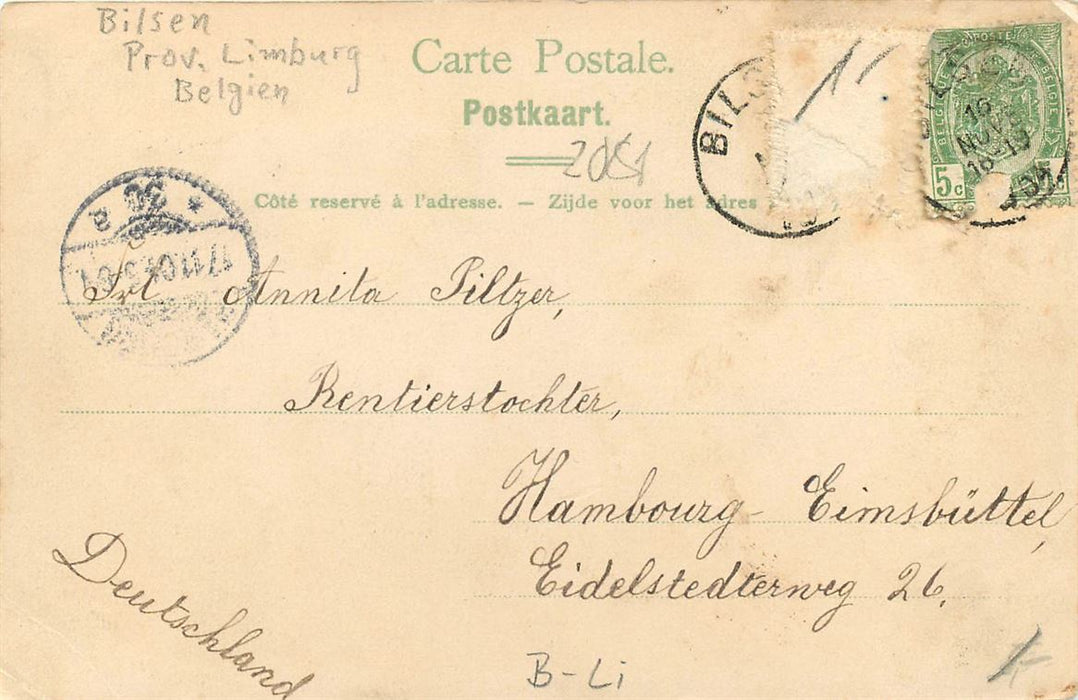 Bilsen
Prov. Limburg
Belgien
Carte Postale.
Postkaart.
Côté reservé à l'adresse. — Zijde voor het adres
BILS
POSTE
BELGIQUE
BELGIË
5c
5c
16
NOV
18-19
17.11.04
Frl Annita Piltzer,
Rentierstochter,
Hambourg- Eimsbüttel,
Eidelstedterweg 26.
Deutschland
B-Li